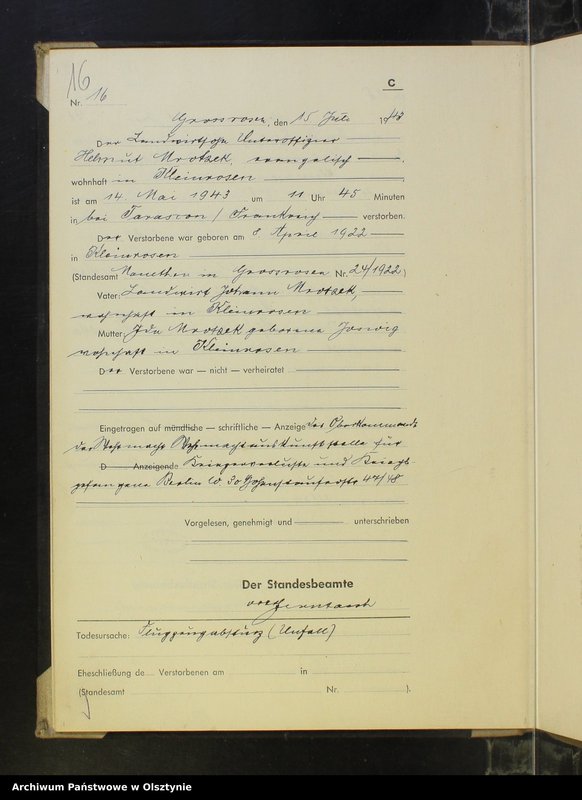 16
C
Nr. 16
Grossrosen, den 15 Juli 1943
Der Landwirtsohn Unteroffizier
Helmut Mrotzek, evangelisch
wohnhaft in Kleinrosen
ist am 14 Mai 1943 um 11 Uhr 45 Minuten
in bei Tarascon / Frankreich verstorben.
Der Verstorbene war geboren am 8 April 1922
in Kleinrosen
(Standesamt in Grossrosen Nr. 24/1922)
Vater: Landwirt Johann Mrotzek,
wohnhaft in Kleinrosen
Mutter: Ida Mrotzek geborene Joswig
wohnhaft in Kleinrosen
Der Verstorbene war — nicht — verheiratet
Eingetragen auf mündliche — schriftliche — Anzeige des Oberkommando
der Wehrmacht Wehrmachtauskunftstelle für
D Anzeigende Kriegerverluste und Kriegs
gefangene Berlin W 30 Hohenstaufenstr 47/48
Vorgelesen, genehmigt und unterschrieben
Der Standesbeamte
Todesursache: Flugzeugabsturz (Unfall)
Eheschließung de Verstorbenen am in
(Standesamt Nr. ).
Archiwum Państwowe w Olsztynie